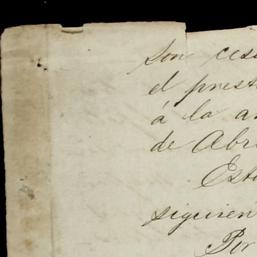 son ces
el prest
á la a
de Abr
Est
siguien
Por